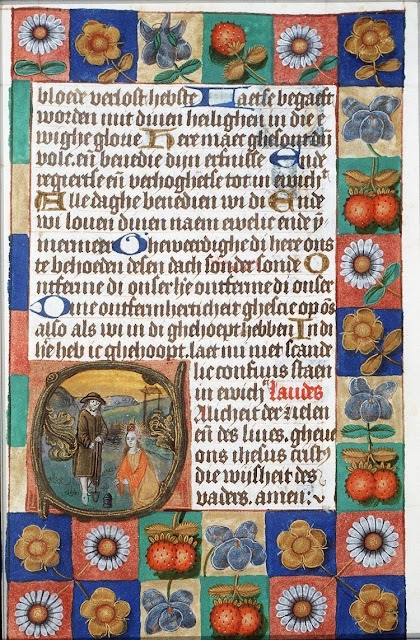 bloede verlost hebste Laetse begaeft
worden mit dinen heilighen in die e
wighe glorie Here maec ghesont dijn
volc. eñ benedie dijn erfnisse Ende
regiertse eñ verhoghetse tot in ewich't
Alle daghe benedien wi di Ende
wi louen dinen naem ewelic ende ÿ
mermeer Gheweerdighe di here ons
te behoeden desen dach sonder sonde O
ntferme di onser h'e ontferme di onser
Dine ontfermherticheit ghescie op õs
also als wi in di ghehoept hebben In di
h'e heb ic ghehoopt. laet mi niet scande
lic confuus staen
in ewich't Laudes
der zielen
eñ des liues. gheue
ons ihesus crist'
die wijsheit des
vaders. amen: